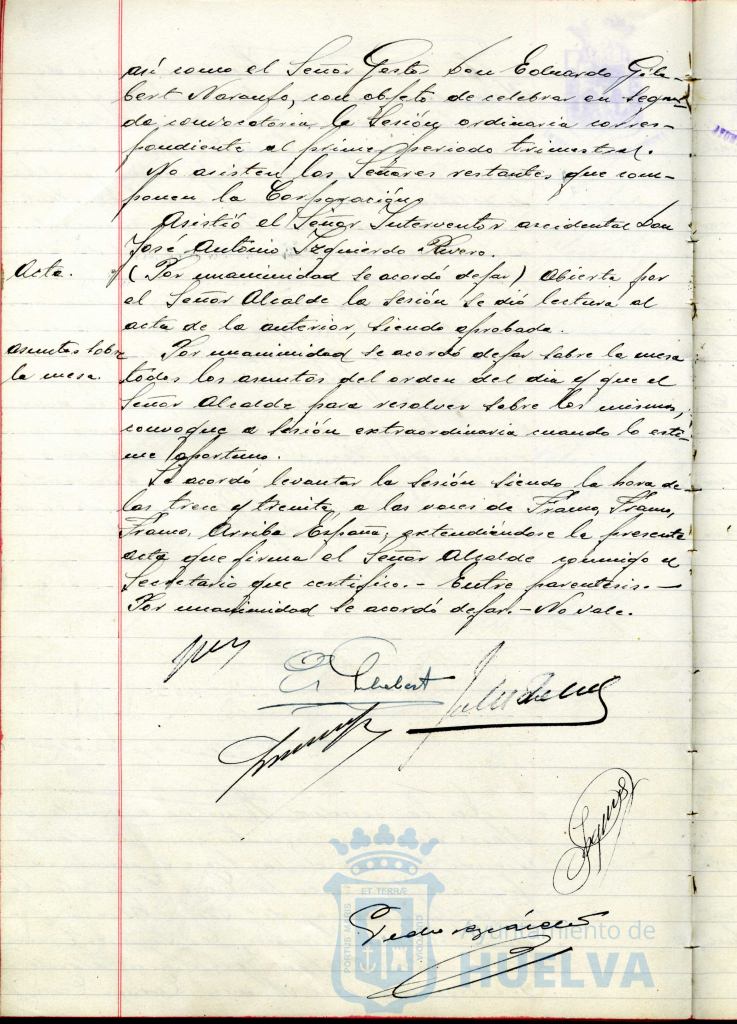 así como el Señor Gestor Don Eduardo Gila-
bert Naranjo, con objeto de celebrar en segun-
da convocatoria, la Sesión ordinaria corres-
pondiente al primer periodo trimestral.
No asisten los Señores restantes que com-
ponen la Corporación,
Asistió el Señor Interventor accidental Don
José Antonio Izquierdo Rivero.
Acta.
(Por unanimidad se acordó dejar) Abierta por
el Señor Alcalde la Sesión se dió lectura al
acta de la anterior, siendo aprobada.
asuntos sobre
la mesa.
Por unanimidad se acordó dejar sobre la mesa
todos los asuntos del orden del dia y que el
Señor Alcalde para resolver sobre los mismos,
convoque a Sesión extraordinaria cuando lo esti-
me oportuno.
Se acordó levantar la Sesión siendo la hora de
las trece y treinta, a las voces de Franco, Franco,
Franco, Arriba España; extendiéndose la presente
acta que firma el Señor Alcalde conmigo el
Secretario que certifico.- Entre parentesis.-
Por unanimidad se acordó dejar.- No vale.
PORTUS MARIS ET TERRÆ CUSTODIA
Ayuntamiento de
HUELVA